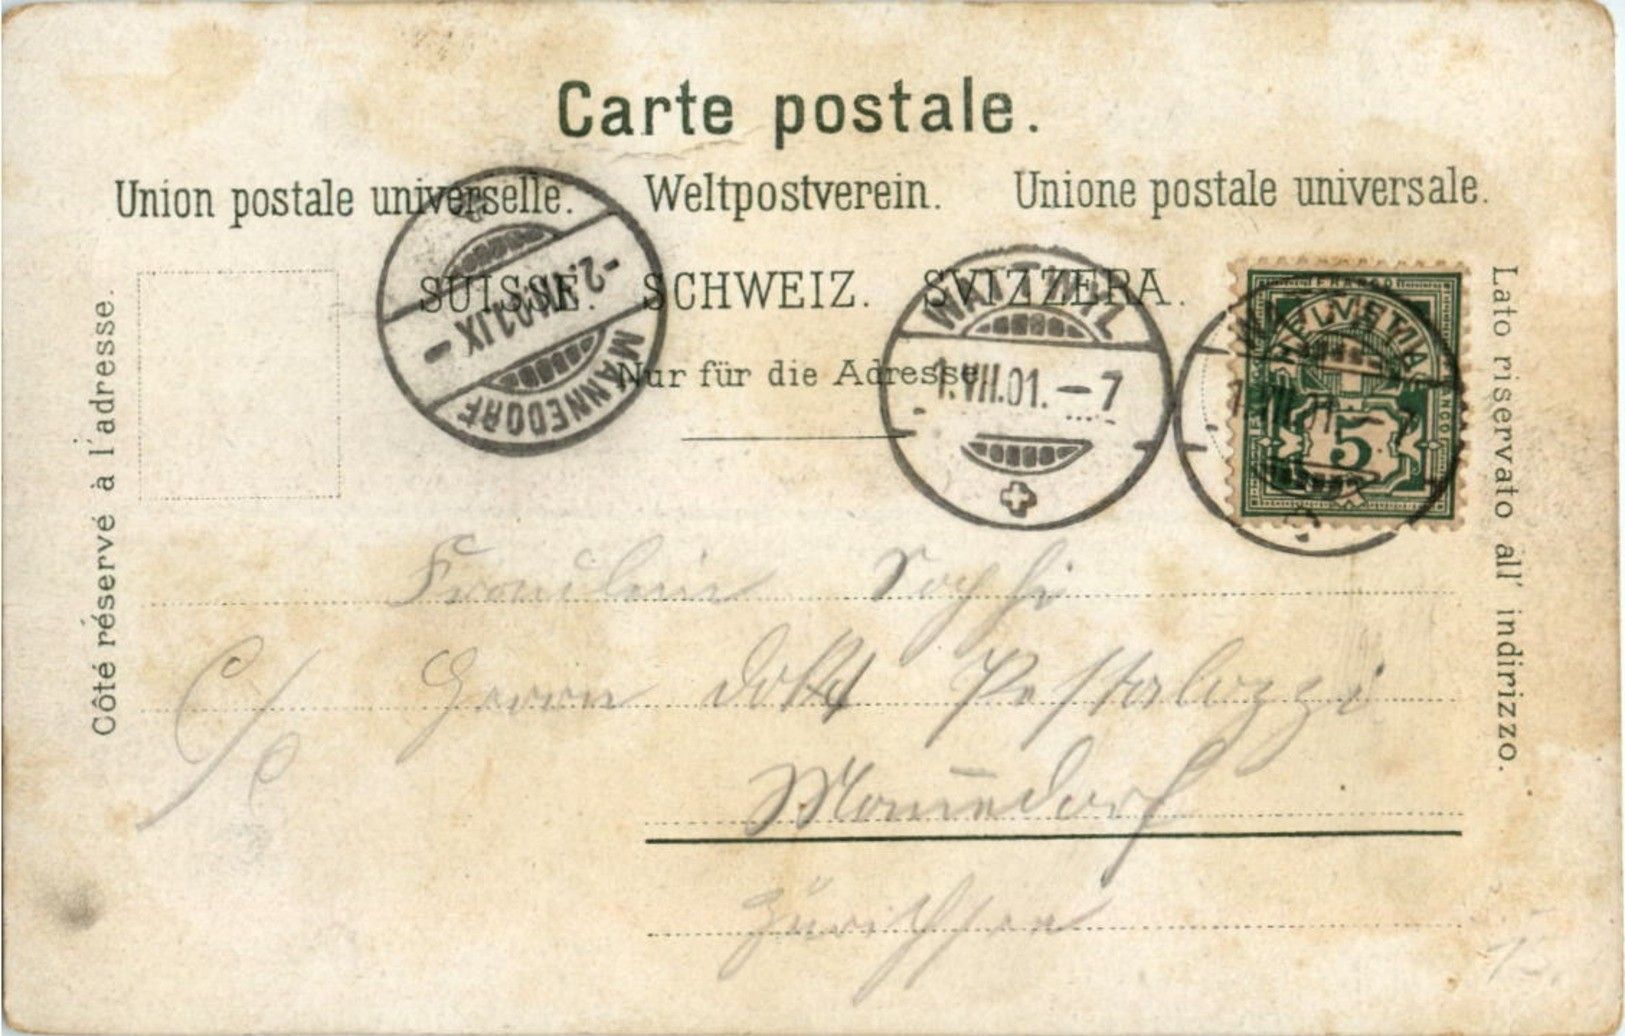 Carte postale.
Union postale universelle. Weltpostverein. Unione postale universale.
SUISSE. SCHWEIZ. SVIZZERA.
Nur für die Adresse.
Côté réservé à l'adresse.
Lato riservato all' indirizzo.
MÄNNEDORF
-2.VII.01.IX-
WATTWIL
1.VII.01.-7
FRANCO
HELVETIA
5
Fräulein Sophi
C/o Herrn Pestalozzi
Männedorf
Zürichsee